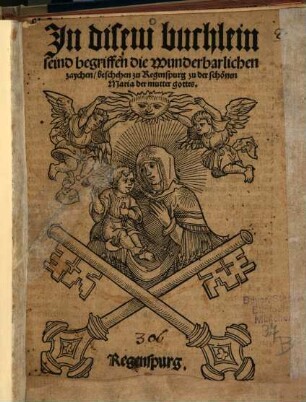 In disem buchlein
seind begriffen die wunderbarlichen
zaychen / beschehen zu Regenspurg zu der schönen
Maria der mutter gottes.
306
Regenspurg.